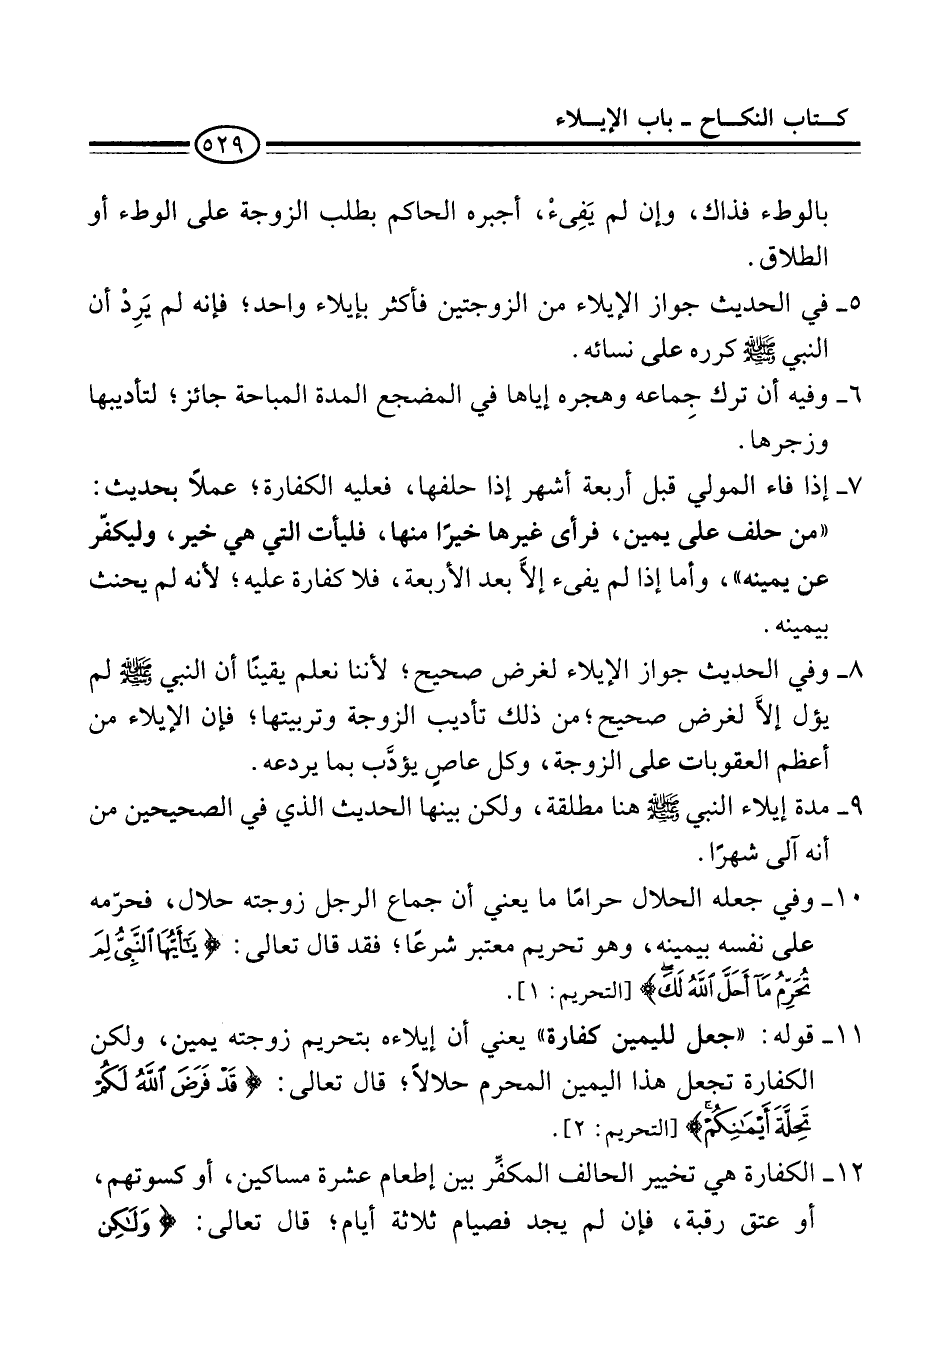 كـتاب النكـاح - باب الإيـلاء
٥٢٩
بالوطء فذاك، وإن لم يَفِىءْ، أجبره الحاكم بطلب الزوجة على الوطء أو
الطلاق.
٥ـ في الحديث جواز الإيلاء من الزوجتين فأكثر بإيلاء واحد؛ فإنه لم يَرِدْ أن
النبي ﷺ كرره على نسائه.
٦ـ وفيه أن ترك جِماعه وهجره إياها في المضجع المدة المباحة جائز؛ لتأديبها
وزجرها.
٧ـ إذا فاء المولي قبل أربعة أشهر إذا حلفها، فعليه الكفارة؛ عملاً بحديث:
«من حلف على يمين، فرأى غيرها خيرًا منها، فليأت التي هي خير، وليكفّر
عن يمينه»، وأما إذا لم يفىء إلاَّ بعد الأربعة، فلا كفارة عليه؛ لأنه لم يحنث
بيمينه.
٨ـ وفي الحديث جواز الإيلاء لغرض صحيح؛ لأننا نعلم يقينًا أن النبي ﷺ لم
يؤل إلاَّ لغرض صحيح؛ من ذلك تأديب الزوجة وتربيتها؛ فإن الإيلاء من
أعظم العقوبات على الزوجة، وكل عاصٍ يؤدَّب بما يردعه.
٩ـ مدة إيلاء النبي ﷺ هنا مطلقة، ولكن بينها الحديث الذي في الصحيحين من
أنه آلى شهرًا.
١٠ـ وفي جعله الحلال حرامًا ما يعني أن جماع الرجل زوجته حلال، فحرّمه
على نفسه بيمينه، وهو تحريم معتبر شرعًا؛ فقد قال تعالى: ﴿يَٰٓأَيُّهَا ٱلنَّبِيُّ لِمَ
تُحَرِّمُ مَآ أَحَلَّ ٱللَّهُ لَكَۖ﴾ [التحريم: ١].
١١ـ قوله: «جعل لليمين كفارة» يعني أن إيلاءه بتحريم زوجته يمين، ولكن
الكفارة تجعل هذا اليمين المحرم حلالاً؛ قال تعالى: ﴿قَدۡ فَرَضَ ٱللَّهُ لَكُمۡ
تَحِلَّةَ أَيۡمَٰنِكُمۡۚ﴾ [التحريم: ٢].
١٢ـ الكفارة هي تخيير الحالف المكفِّر بين إطعام عشرة مساكين، أو كسوتهم،
أو عتق رقبة، فإن لم يجد فصيام ثلاثة أيام؛ قال تعالى: ﴿وَلَٰكِن